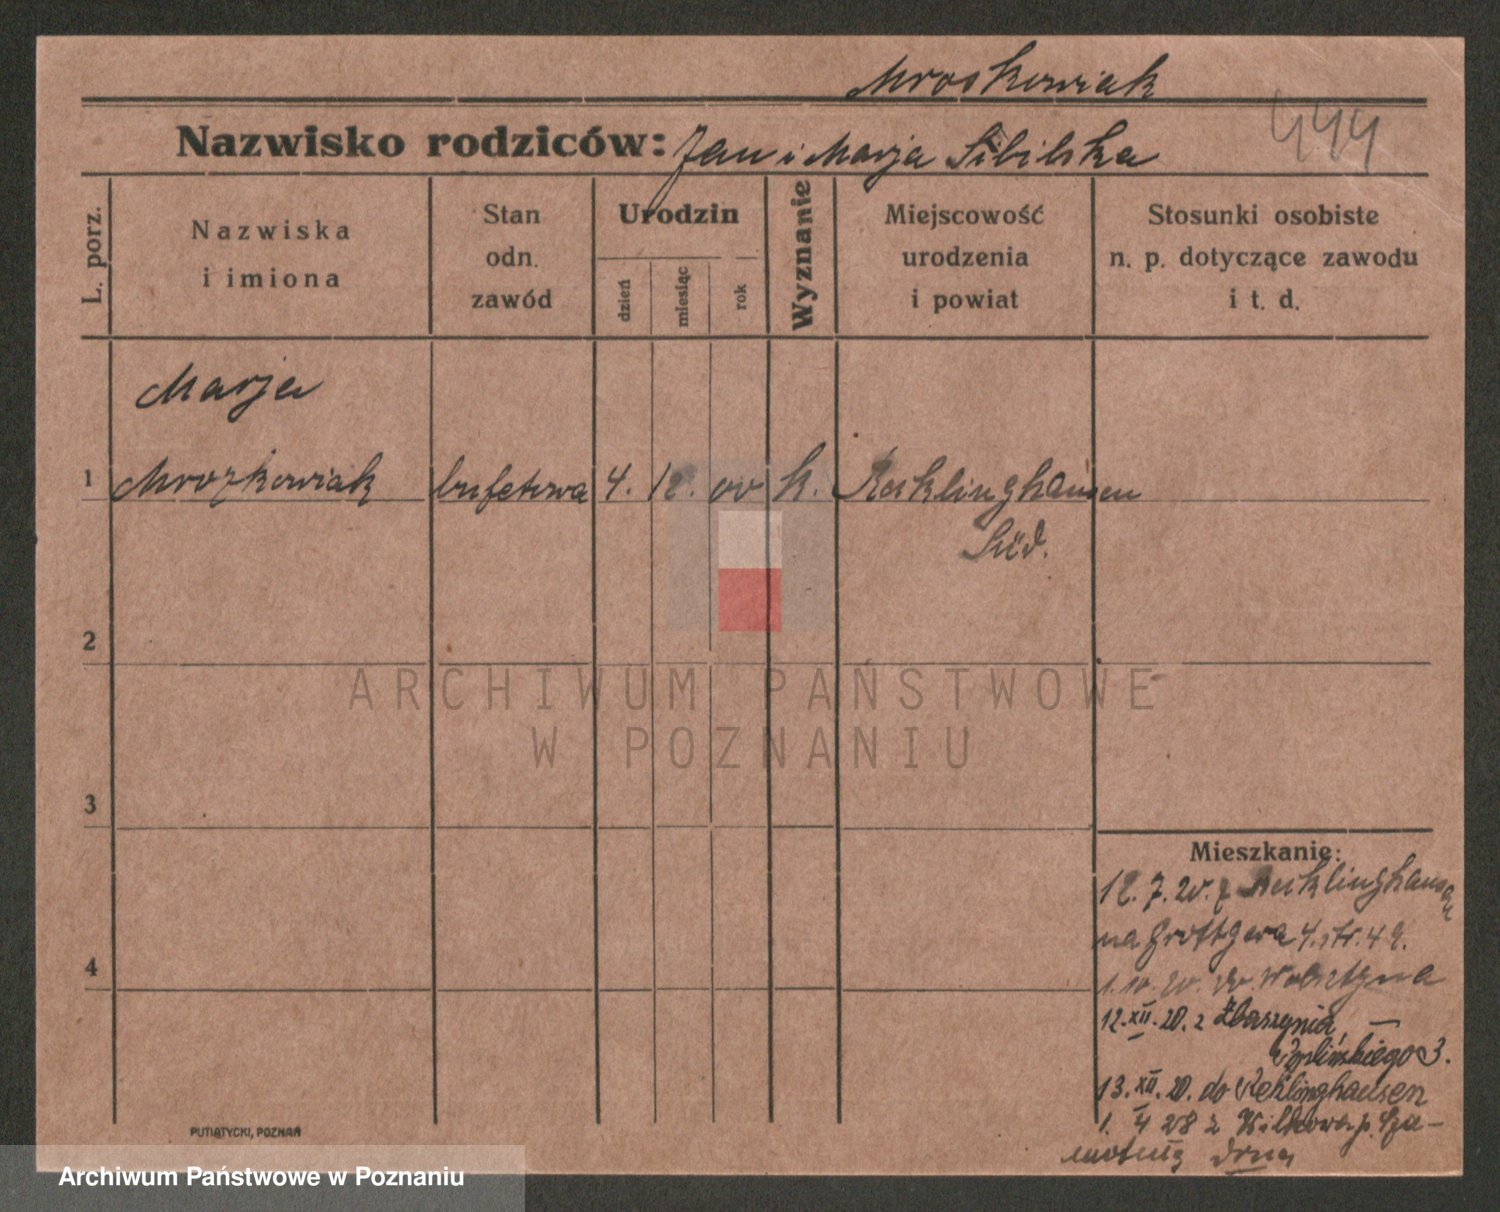 Mroskowiak
Nazwisko rodziców: Jan i Marja Sibilska
444
L. porz.
Nazwiska
i imiona
Stan
odn.
zawód
Urodzin
dzień
miesiąc
rok
Wyznanie
Miejscowość
urodzenia
i powiat
Stosunki osobiste
n. p. dotyczące zawodu
i t. d.
Marja
1 Mrozkowiak bufetowa 4. 12. 00 k. Recklinghausen
Süd.
2
ARCHIWUM PAŃSTWOWE
W POZNANIU
3
Mieszkanie:
12. 7. 20. z Recklinghausen
na Grottgera 4. str. 49.
4
1. 10. 20. do Wolsztyna
12. XII. 20. z Zbaszynia
3.
13. XII. 20. do Reklinghausen
1. 4 28 z p. Sza-
motuły
PUTIATYCKI, POZNAŃ
Archiwum Państwowe w Poznaniu